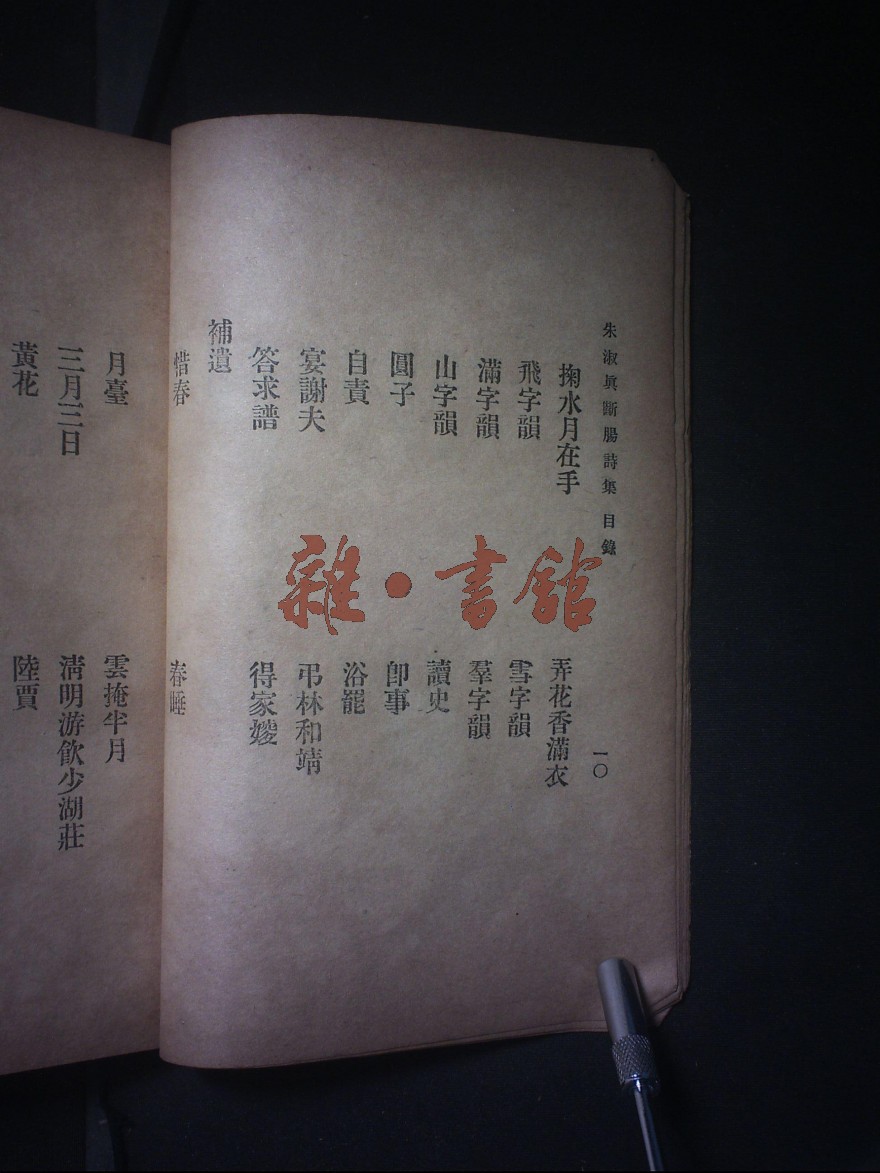 朱淑眞斷腸詩集 目錄
一〇
掬水月在手
弄花香滿衣
飛字韻
雪字韻
滿字韻
羣字韻
山字韻
讀史
圓子
卽事
自責
浴罷
宴謝夫
弔林和靖
答求譜
得家嫂
補遺
惜春
春睡
月臺
雲掩半月
三月三日
淸明游飮少湖莊
黃花
陸賈
雜·書館